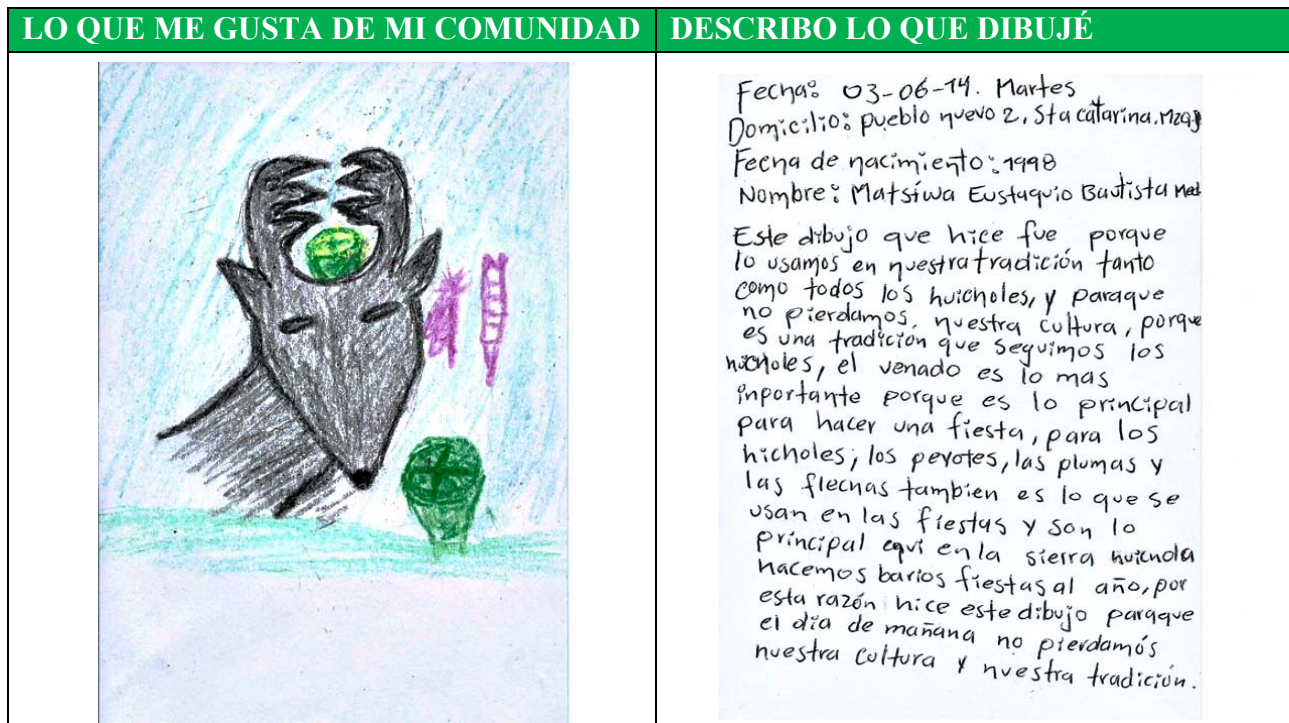 LO QUE ME GUSTA DE MI COMUNIDAD
DESCRIBO LO QUE DIBUJÉ
Fecha: 03-06-14. Martes
Domicilio: pueblo nuevo 2, Sta catarina.
Fecha de nacimiento: 1998
Nombre: Matsíwa Eustaquio Bautista
Este dibujo que hice fue porque
lo usamos en nuestra tradición tanto
como todos los huicholes, y paraque
no pierdamos, nuestra cultura, porque
es una tradición que seguimos los
huicholes, el venado es lo mas
inportante porque es lo principal
para hacer una fiesta, para los
hicholes, los peyotes, las plumas y
las flechas tambien es lo que se
usan en las fiestas y son lo
principal equi en la sierra huichola
hacemos barios fiestas al año, por
esta razón hice este dibujo paraque
el día de mañana no pierdamós
nuestra cultura y nuestra tradición.